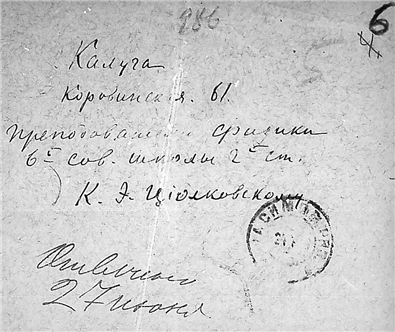 986
6
Калуга
Коровинская. 61.
Преподавателю физики
6й сов. школы 2й ст.
К. Э. Ціолковскому
Отвечено
27 июня